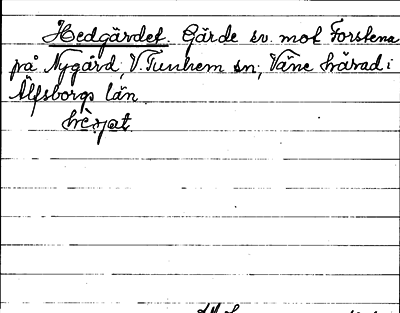 Hedgärdet. Gärde sv. mot Forstena
på Nygård, V. Tunhem sn; Väne härad i
Älfsborgs län.